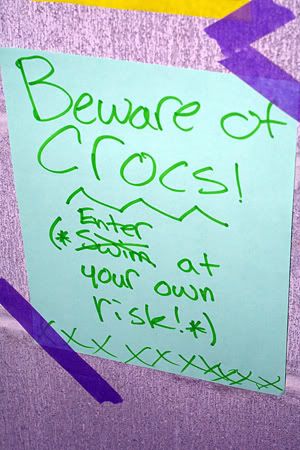 Beware of
Crocs!
Enter
(*Swim at
your own
risk!*)
xx xxxxxxx